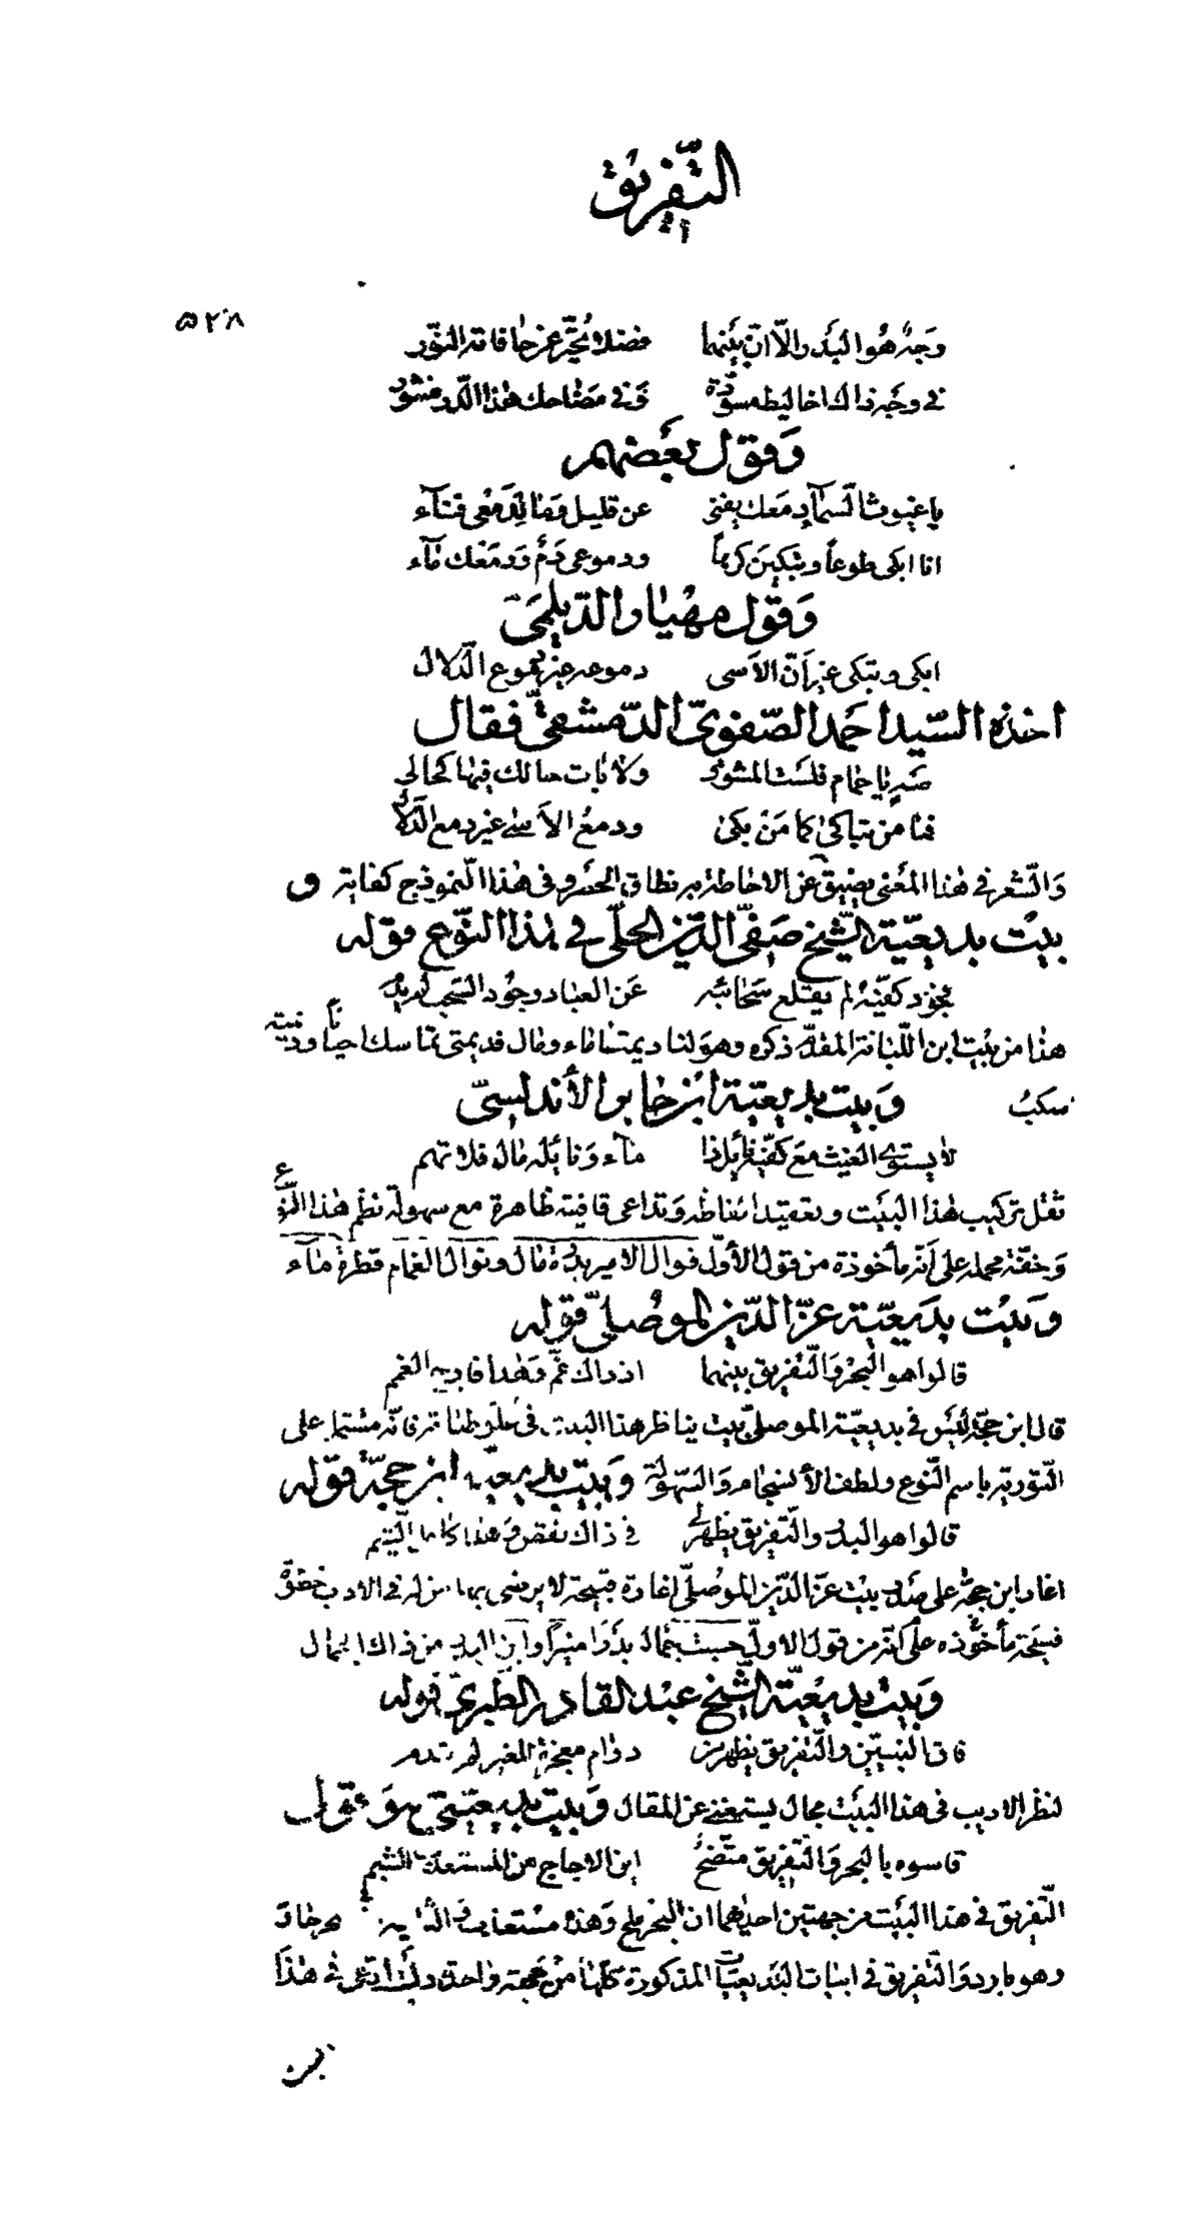 التّفريق
٥٢٨
وَجهٌ هُو البَدر الّا انّ بَينَهما فضلا تحيّر عن حافاته النّور
في وجه ذاك اخاليط مسوّدة وَفي مضاحك هذا الدّر منثور
وَقول بَعضهم
يا غيوث السّماء دمعك يفنى عن قليل وَما لدمعي فناء
انا ابكي طوعاً وتبكين كرهاً ودموعي دَمٌ وَدمعك ماء
وَقول مهيار الديلمي
ابكي وتبكي غير أنّ الاسى دموعه غير دموع الدّلال
اخذه السّيد احمد الصّفوي الدّمشقي فقال
صبرٍ يا حمام فلست المشوق ولا بات حالك فيها كحالي
فما من تباكى كما مَن بكى ودمع الاسى غير دمع الدّلال
وَالشّعر في هذا المعنى يضيق عن الاحاطة به نطاق الحصر وفي هذا النّموذج كفاية و
بيت بديعيّة الشّيخ صَفيّ الدّين الحلّي في هذا النّوع قوله
فجود كفّيه لم تقلع سَحائبه عَن العباد وجود السّحب لم يدم
هذا من بيت ابن اللّبانة المقدّم ذكره وهو لنا ديمتا ماء ومال فديمتي تماسك احياناً وديمته
سكبُ
وَبيت بديعيّة ابن جابر الأندلسيّ
لا يستوي الغيث مع كفّيه نائل ذا ماء وَنائله مال فلا تهم
ثقل تركيب هذا البيت وتعقيد الفاظه وَتداعي قافيته ظاهرة مع سهولة نظم هذا النّوع
وَخفّة محمله على أنّه مأخوذة من قول الأوّل فنوال الامير بدرة مال ونوال الغمام قطرة ماء
وَبيت بديعيّة عزّ الدّين الموصليّ قوله
قالوا هو البحر وَالتّفريق بينهما اذ ذاك غمّ وَهذا فارج الغمم
قال ابن حجّة ليس في بديعيّة الموصليّ بيت يناظر هذا البيت في علوّ طباقه فانّه مشتمل على
التّورية باسم النّوع ولطف الأنسجام وَالسّهولة وَبيت بديعيّة ابن حجّة قوله
قالوا هو البدر والتّفريق يظهر لي في ذاك نقص وَهذا كامل الشّيم
اغار ابن حجّة على صدر بيت عزّ الدّين الموصليّ اغارة قبيحة لا يرضى بها من له في الادب
قبيحة مأخوذه على أنّه من قول الاوّل حسبت جماله بدرا منيراً واين البدر من ذاك الجمال
وَبيت بديعيّة الشّيخ عبد القادر الطّبري قوله
فاق النّبيّين والتّفريق يظهر من دوام معجزة للغير لم تدم
لنظر الاديب في هذا البيت مجال يستغني عن المقال وَبيت بديعيّتي هو قولي
قاسوه بالبحر وَالتّفريق متّضح اين الاجاج من المستعذب الشّبم
التّفريق في هذا البيت من جهتين احداهما ان البحر ملح وَهذا مستعذب
وهو بارد وَالتّفريق في ابيات البديعيّات المذكورة كلّها من جهة واحدة في هذا